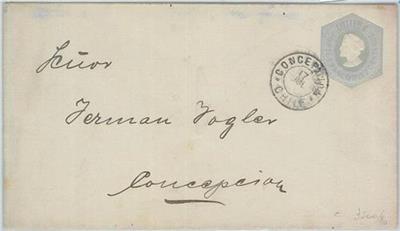 Señor
Herman Vogler
Concepcion
CONCEPCION
17
CHILE